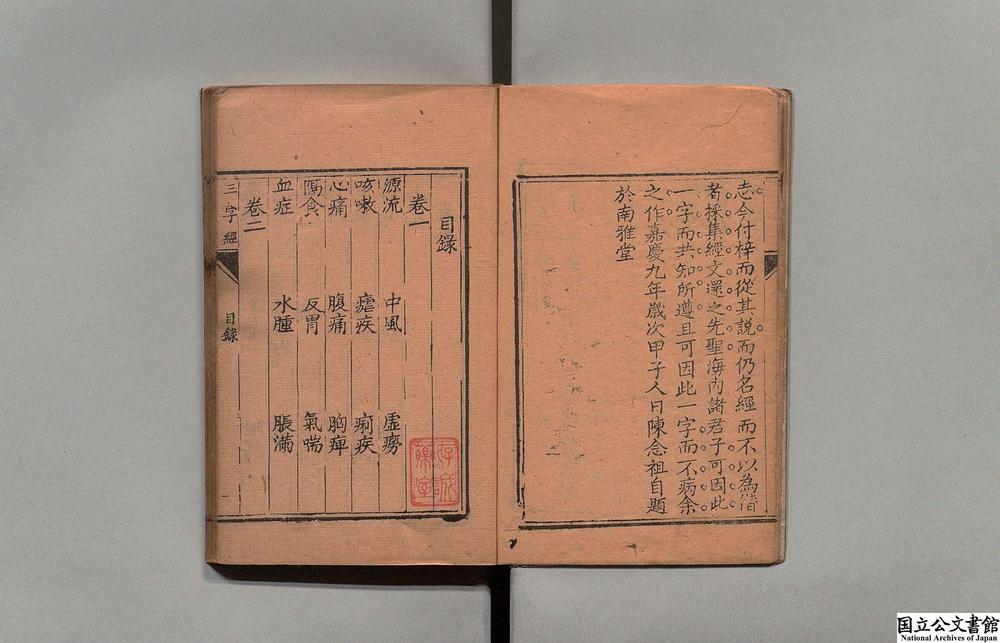 志今付梓而從其說而仍名經而不以為僭
者採集經文還之先聖海內諸君子可因此
一字而共知所遵且可因此一字而不病余
之作嘉慶九年歲次甲子人日陳念祖自題
於南雅堂
目錄
卷一
源流 中風 虛癆
咳嗽 瘧疾 痢疾
心痛 腹痛 胸痺
隔食 反胃 氣喘
血症 水腫 脹滿
卷二
三字經 目錄 一
国立公文書館
National Archives of Japan